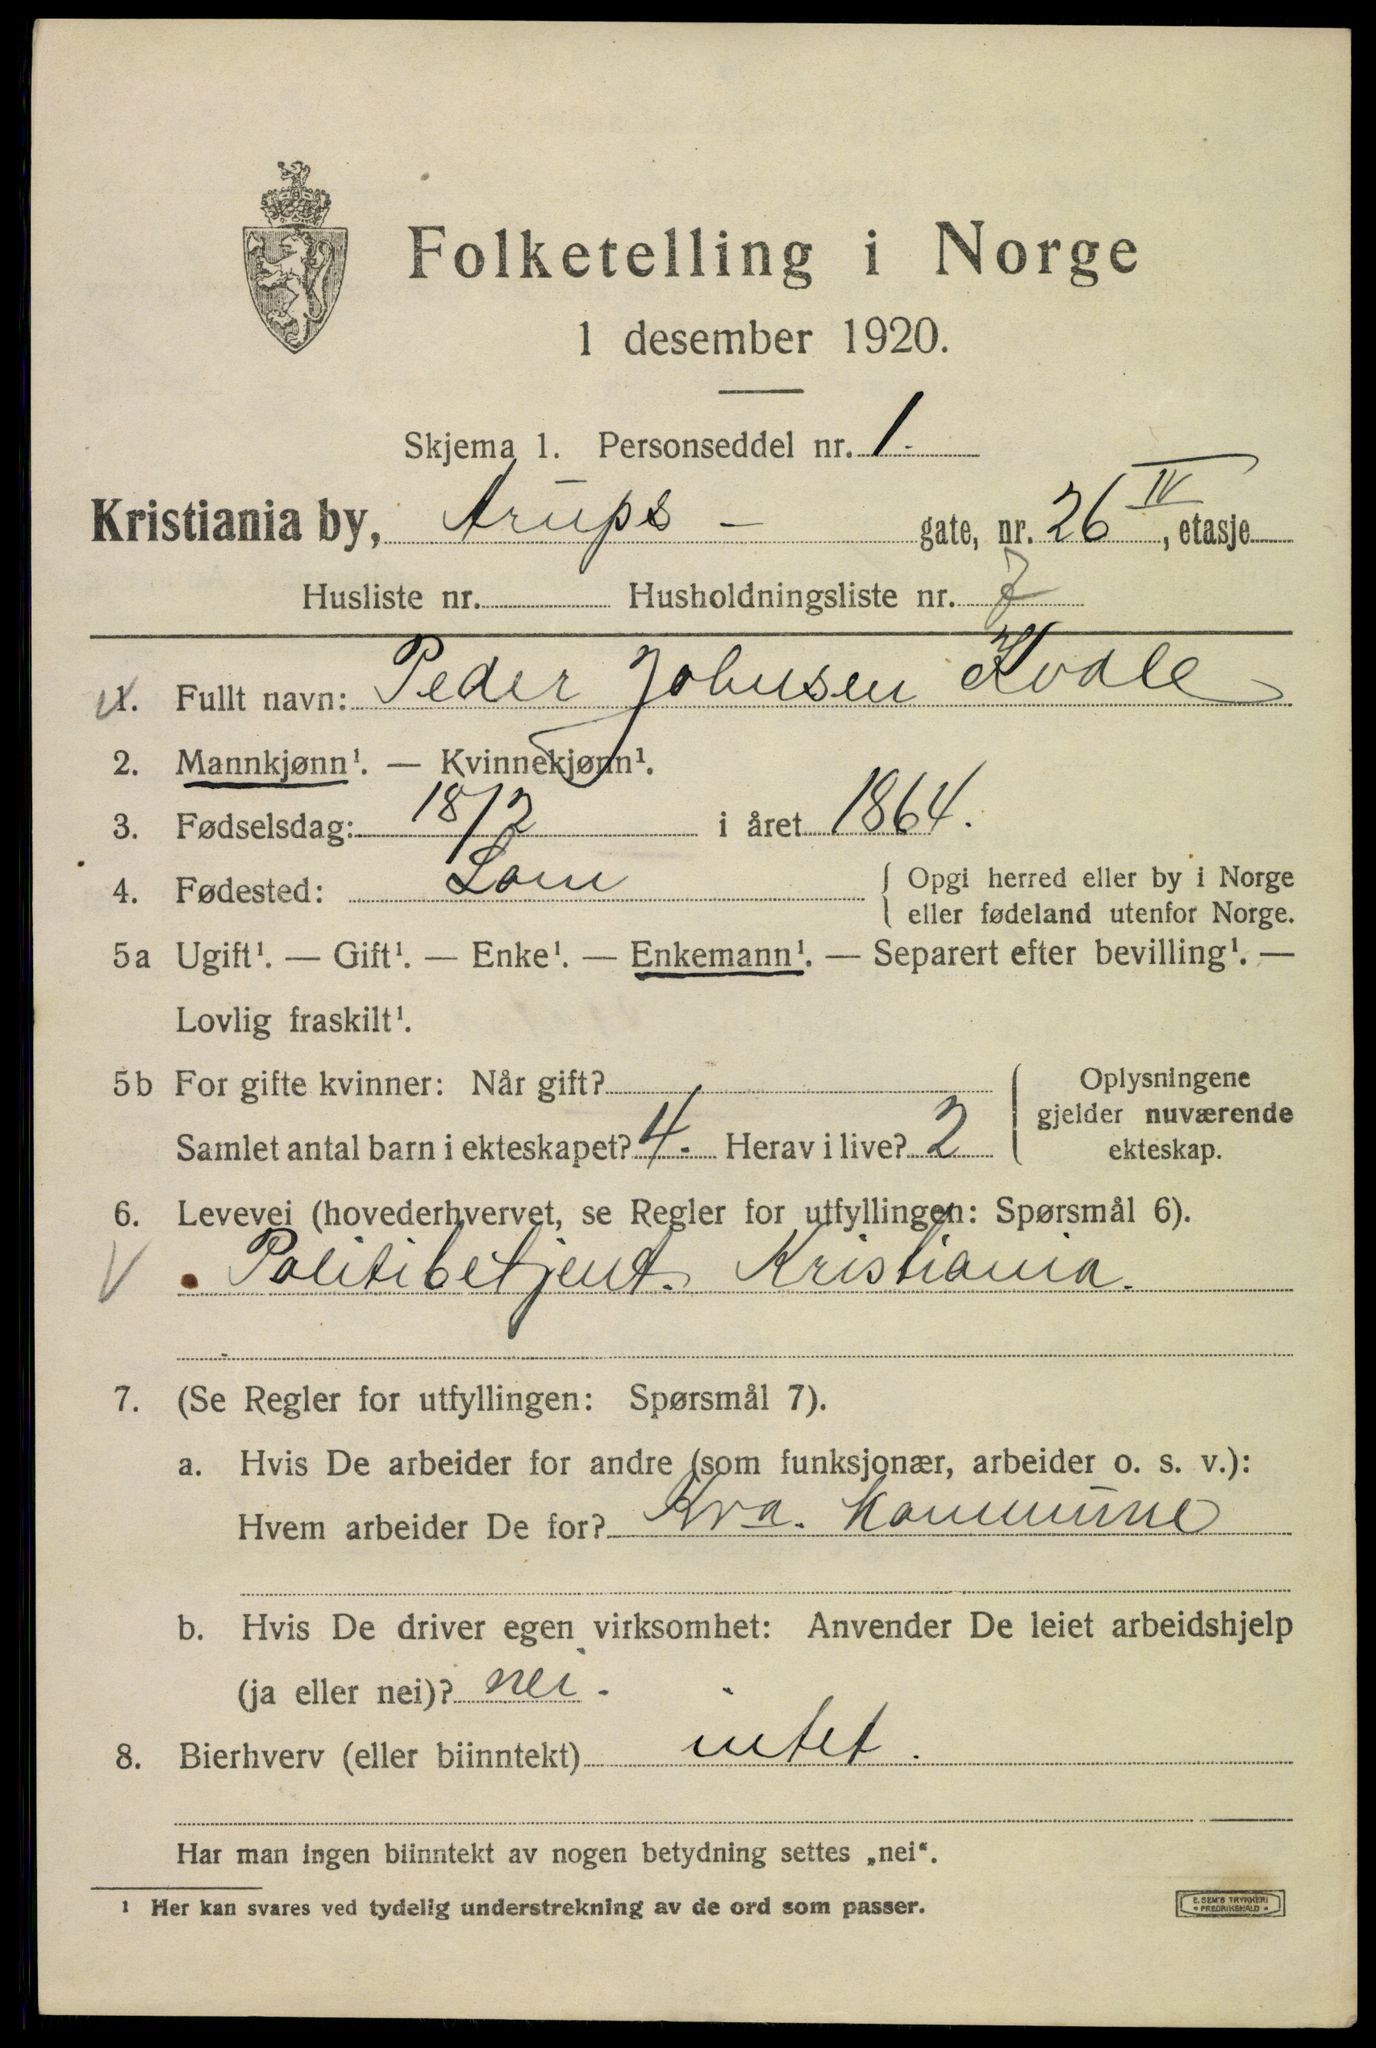 Folketelling i Norge
1 desember 1920.
Skjema 1. Personseddel nr. 1.
Kristiania by, Arups - gate, nr. 26 IV, etasje
Husliste nr. Husholdningsliste nr. 7
1. Fullt navn: Peder Johnsen Kvale
2. Mannkjønn¹. — Kvinnekjønn¹.
3. Fødselsdag: 18/2 i året 1864.
4. Fødested: Lom { Opgi herred eller by i Norge
eller fødeland utenfor Norge.
5a Ugift¹. — Gift¹. — Enke¹. — Enkemann¹. — Separert efter bevilling¹. —
Lovlig fraskilt¹.
5b For gifte kvinner: Når gift? { Oplysningene
gjelder nuværende
Samlet antal barn i ekteskapet? 4. Herav i live? 2 ekteskap.
6. Levevei (hovederhvervet, se Regler for utfyllingen: Spørsmål 6).
Politibetjent. Kristiania.
7. (Se Regler for utfyllingen: Spørsmål 7).
a. Hvis De arbeider for andre (som funksjonær, arbeider o. s. v.):
Hvem arbeider De for? Kra. Kommune
b. Hvis De driver egen virksomhet: Anvender De leiet arbeidshjelp
(ja eller nei)? nei.
8. Bierhverv (eller biinntekt) intet.
Har man ingen biinntekt av nogen betydning settes „nei“.
¹ Her kan svares ved tydelig understrekning av de ord som passer.
E. SEM'S TRYKKERI
FREDRIKSHALD